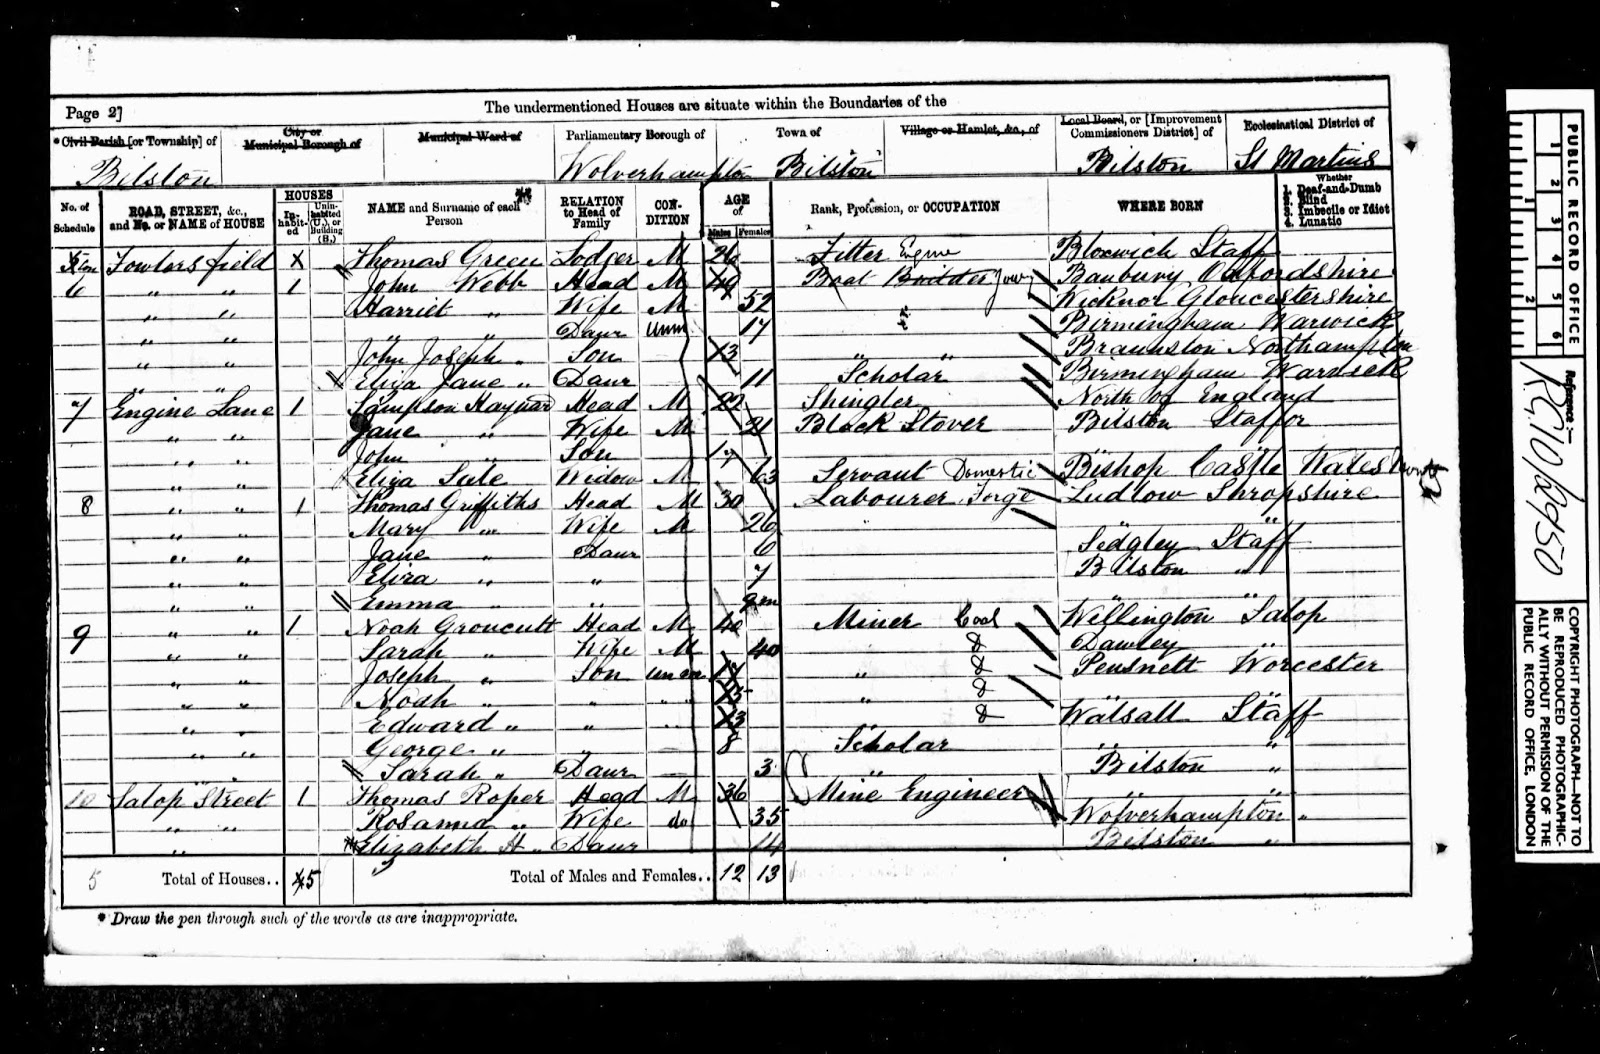 Page 2]
The undermentioned Houses are situate within the Boundaries of the
*Civil Parish [or Township] of
City or Municipal Borough of
Municipal Ward of
Parliamentary Borough of
Town of
Village or Hamlet, &c., of
Local Board, or [Improvement Commissioners District] of
Ecclesiastical District of
Bilston Wolverhampton Bilston Bilston St Martins
No. of Schedule
ROAD, STREET, &c., and No. or NAME of HOUSE
HOUSES
In-habit-ed
Unin-habited (U.), or Building (B.)
NAME and Surname of each Person
RELATION to Head of Family
CON-DITION
AGE of
Males Females
Rank, Profession, or OCCUPATION
WHERE BORN
Whether
1. Deaf-and-Dumb
2. Blind
3. Imbecile or Idiot
4. Lunatic
Fowlers field X Thomas Green Lodger M 26 Fitter Engine Bloxwich Staff
6 " " 1 John Webb Head M 49 Boat Builder Jour Banbury Oxfordshire
" " Harriet " Wife M 52 Gloucestershire
" " " " Daur Unm 17 Birmingham Warwick
" " John Joseph " Son 13 " " Braunston Northampton
" " Eliza Jane " Daur 11 Scholar Birmingham Warwick
7 Engine Lane 1 Sampson Head M 22 Shingler North of England
" " Jane " Wife M 21 Black Stover Bilston Staffor
" " John " Son " "
" " Eliza Widow M 63 Servant Domestic Bishop Castle Wales
8 " " 1 Thomas Griffiths Head M 30 Labourer Forge Ludlow Shropshire
" " Mary " Wife M 26 " " "
" " Jane " Daur 6 Sedgley Staff
" " Eliza " " Bilston "
" " Emma " " 9m " "
9 " " 1 Noah Groucutt Head M 40 Miner Coal Wellington Salop
" " Sarah " Wife M 40 Dawley "
" " Joseph " Son unm 17 " Pensnett Worcester
" " Noah " " " 15 " " "
" " Edward " " 13 " Walsall Staff
" " George " " 8 Scholar " "
" " Sarah " Daur 3 " Bilston "
10 Salop Street 1 Thomas Roper Head M 36 Mine Engineer " "
" " Rosanna " Wife do 35 Wolverhampton "
" Elizabeth H " Daur 14 Bilston "
5 Total of Houses.. 5 Total of Males and Females.. 12 13
* Draw the pen through such of the words as are inappropriate.
PUBLIC RECORD OFFICE
1 2 3 4 5 6
1 2
Reference :—
RG10/2950
COPYRIGHT PHOTOGRAPH—NOT TO BE REPRODUCED PHOTOGRAPHIC-ALLY WITHOUT PERMISSION OF THE PUBLIC RECORD OFFICE, LONDON